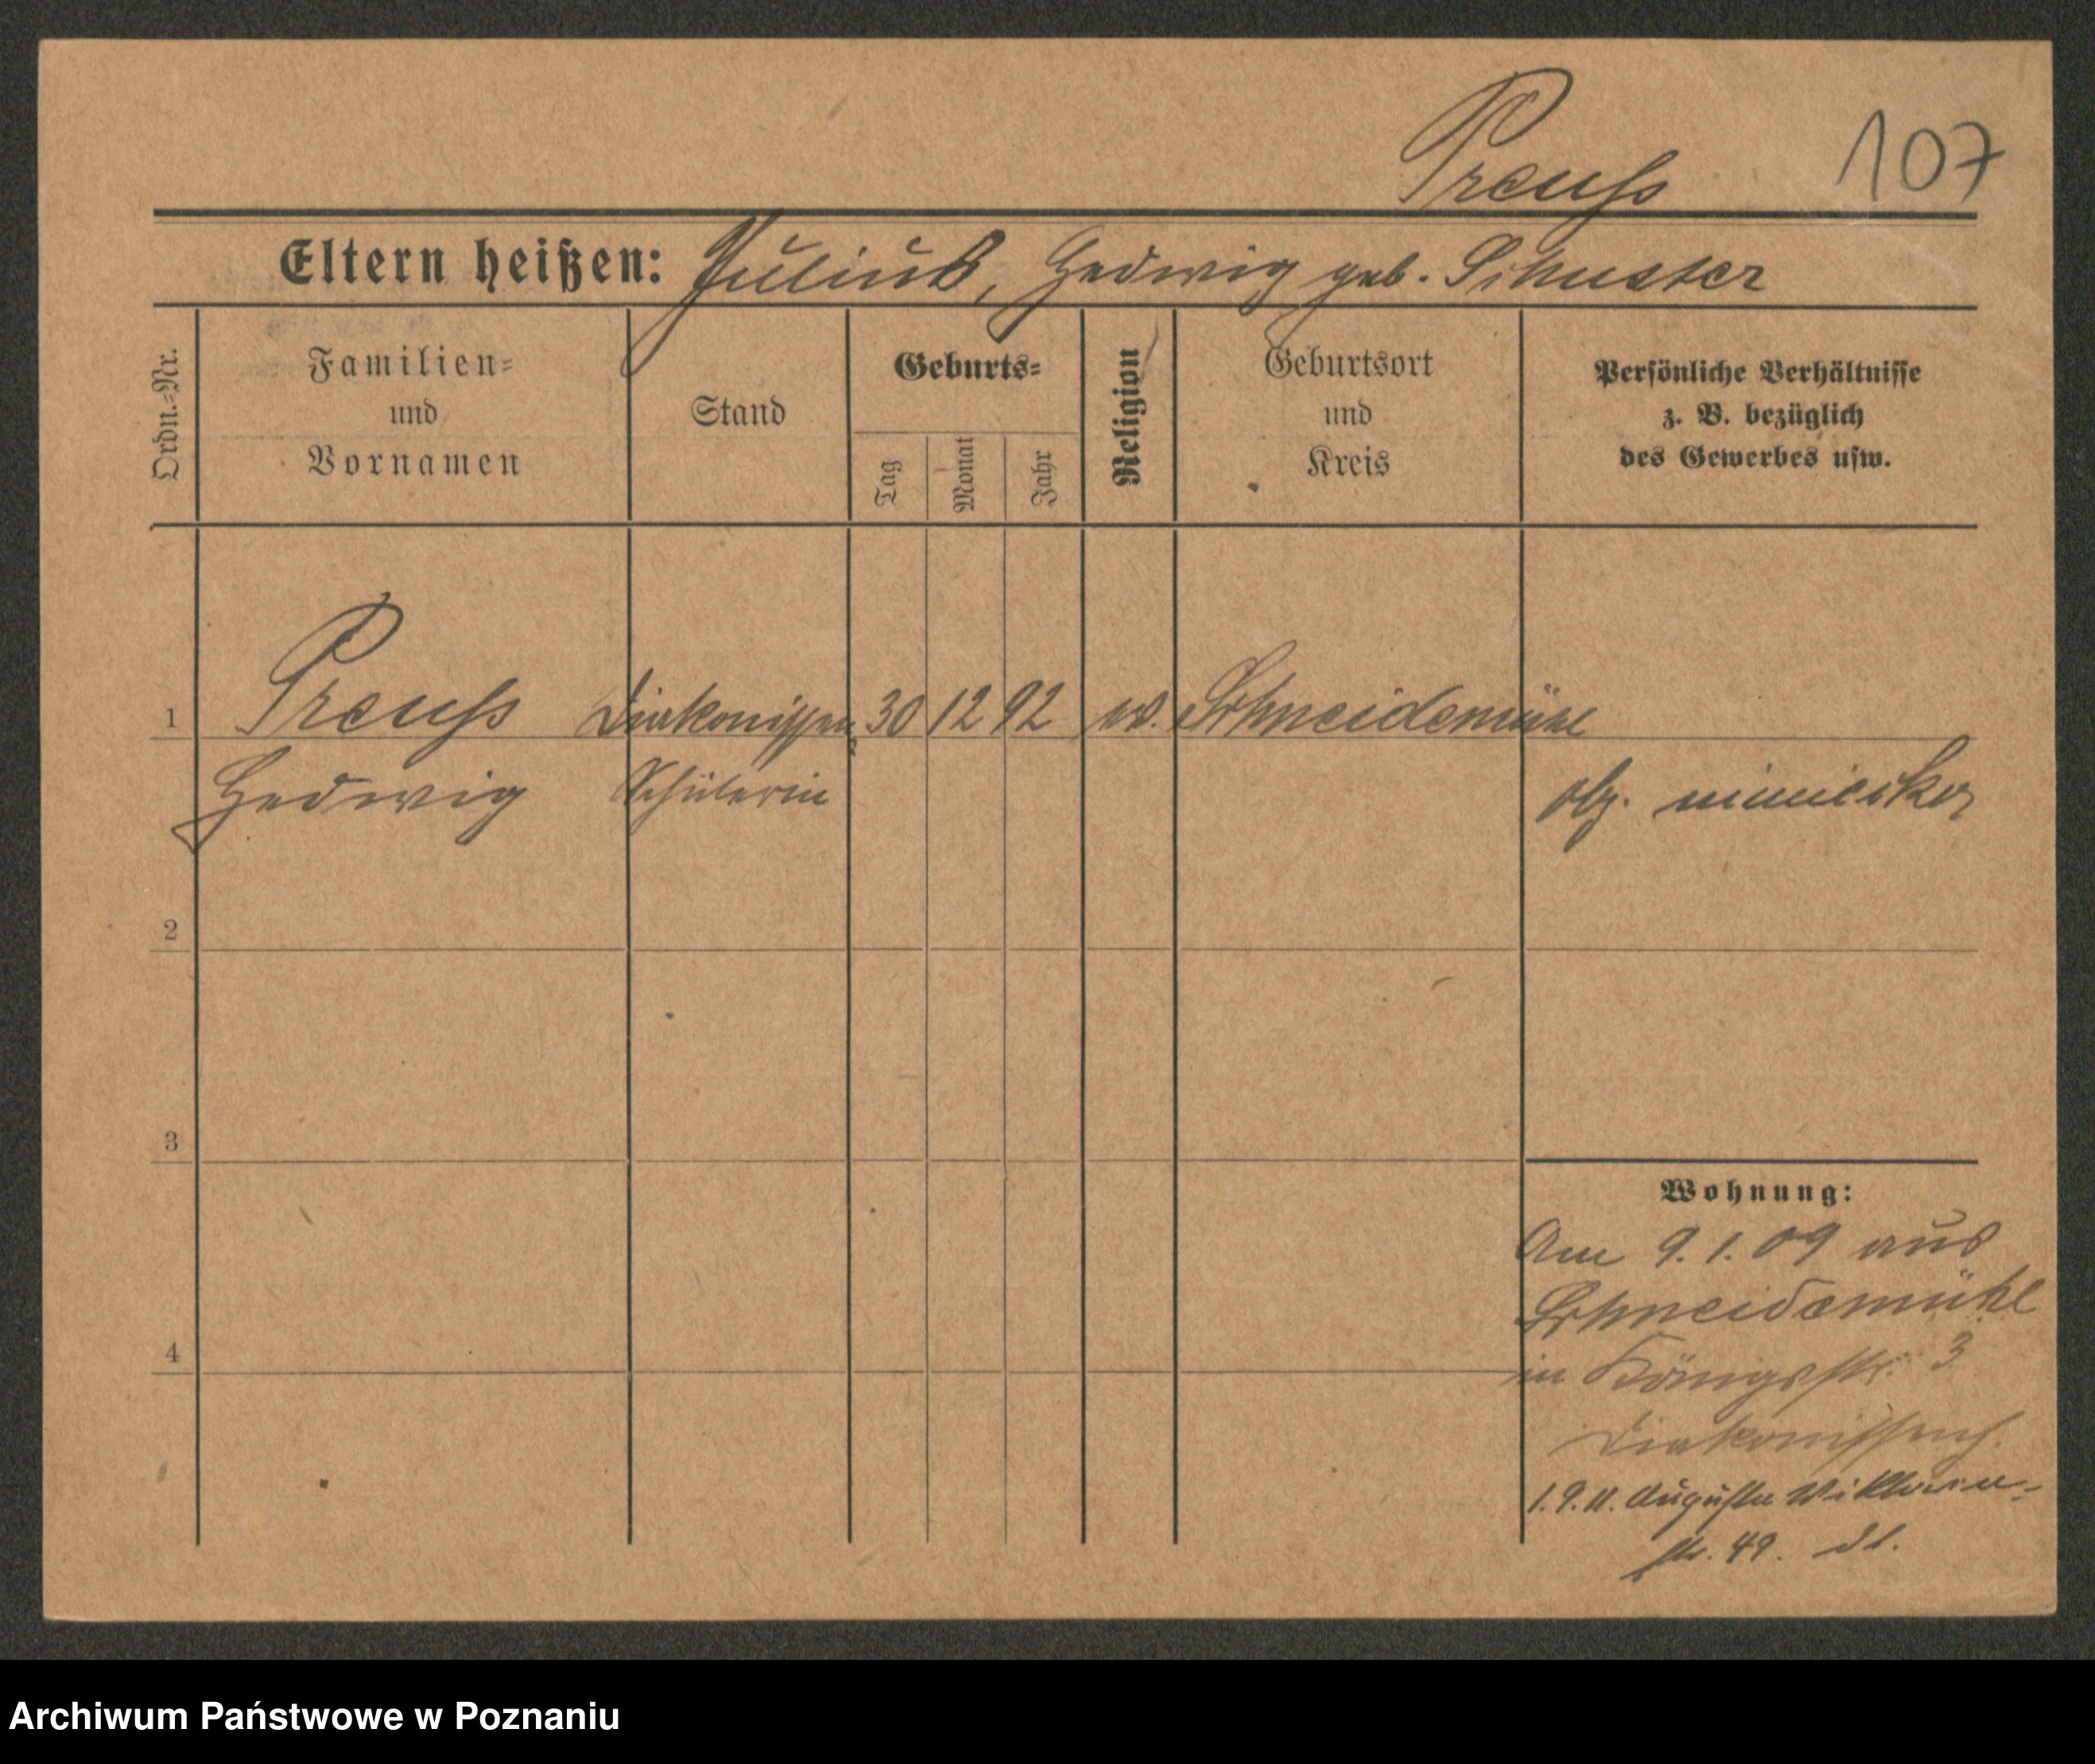 Preuß 107
Eltern heißen: Julius, Hedwig geb. Schuster
Ordn.-Nr.
Familien-
und
Vornamen
Stand
Geburts-
Tag
Monat
Jahr
Religion
Geburtsort
und
Kreis
Persönliche Verhältnisse
z. B. bezüglich
des Gewerbes usw.
1 Preuß Diakonissen 30 12 92 ev. Schneidemühl
Hedwig Schülerin
obyw. niemiecka
2
3
Wohnung:
Am 9.1.09 aus
Schneidemühl
4
in Königsstr. 3
Diakonissenh.
1.9.11. Augusta Viktoria-
str. 49.
Archiwum Państwowe w Poznaniu